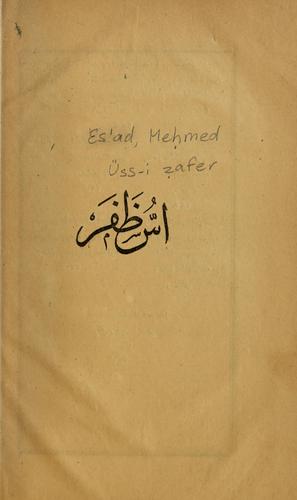 Es'ad, Meḥmed
Üss-i ẓafer
اُسِّ ظَفَرْ